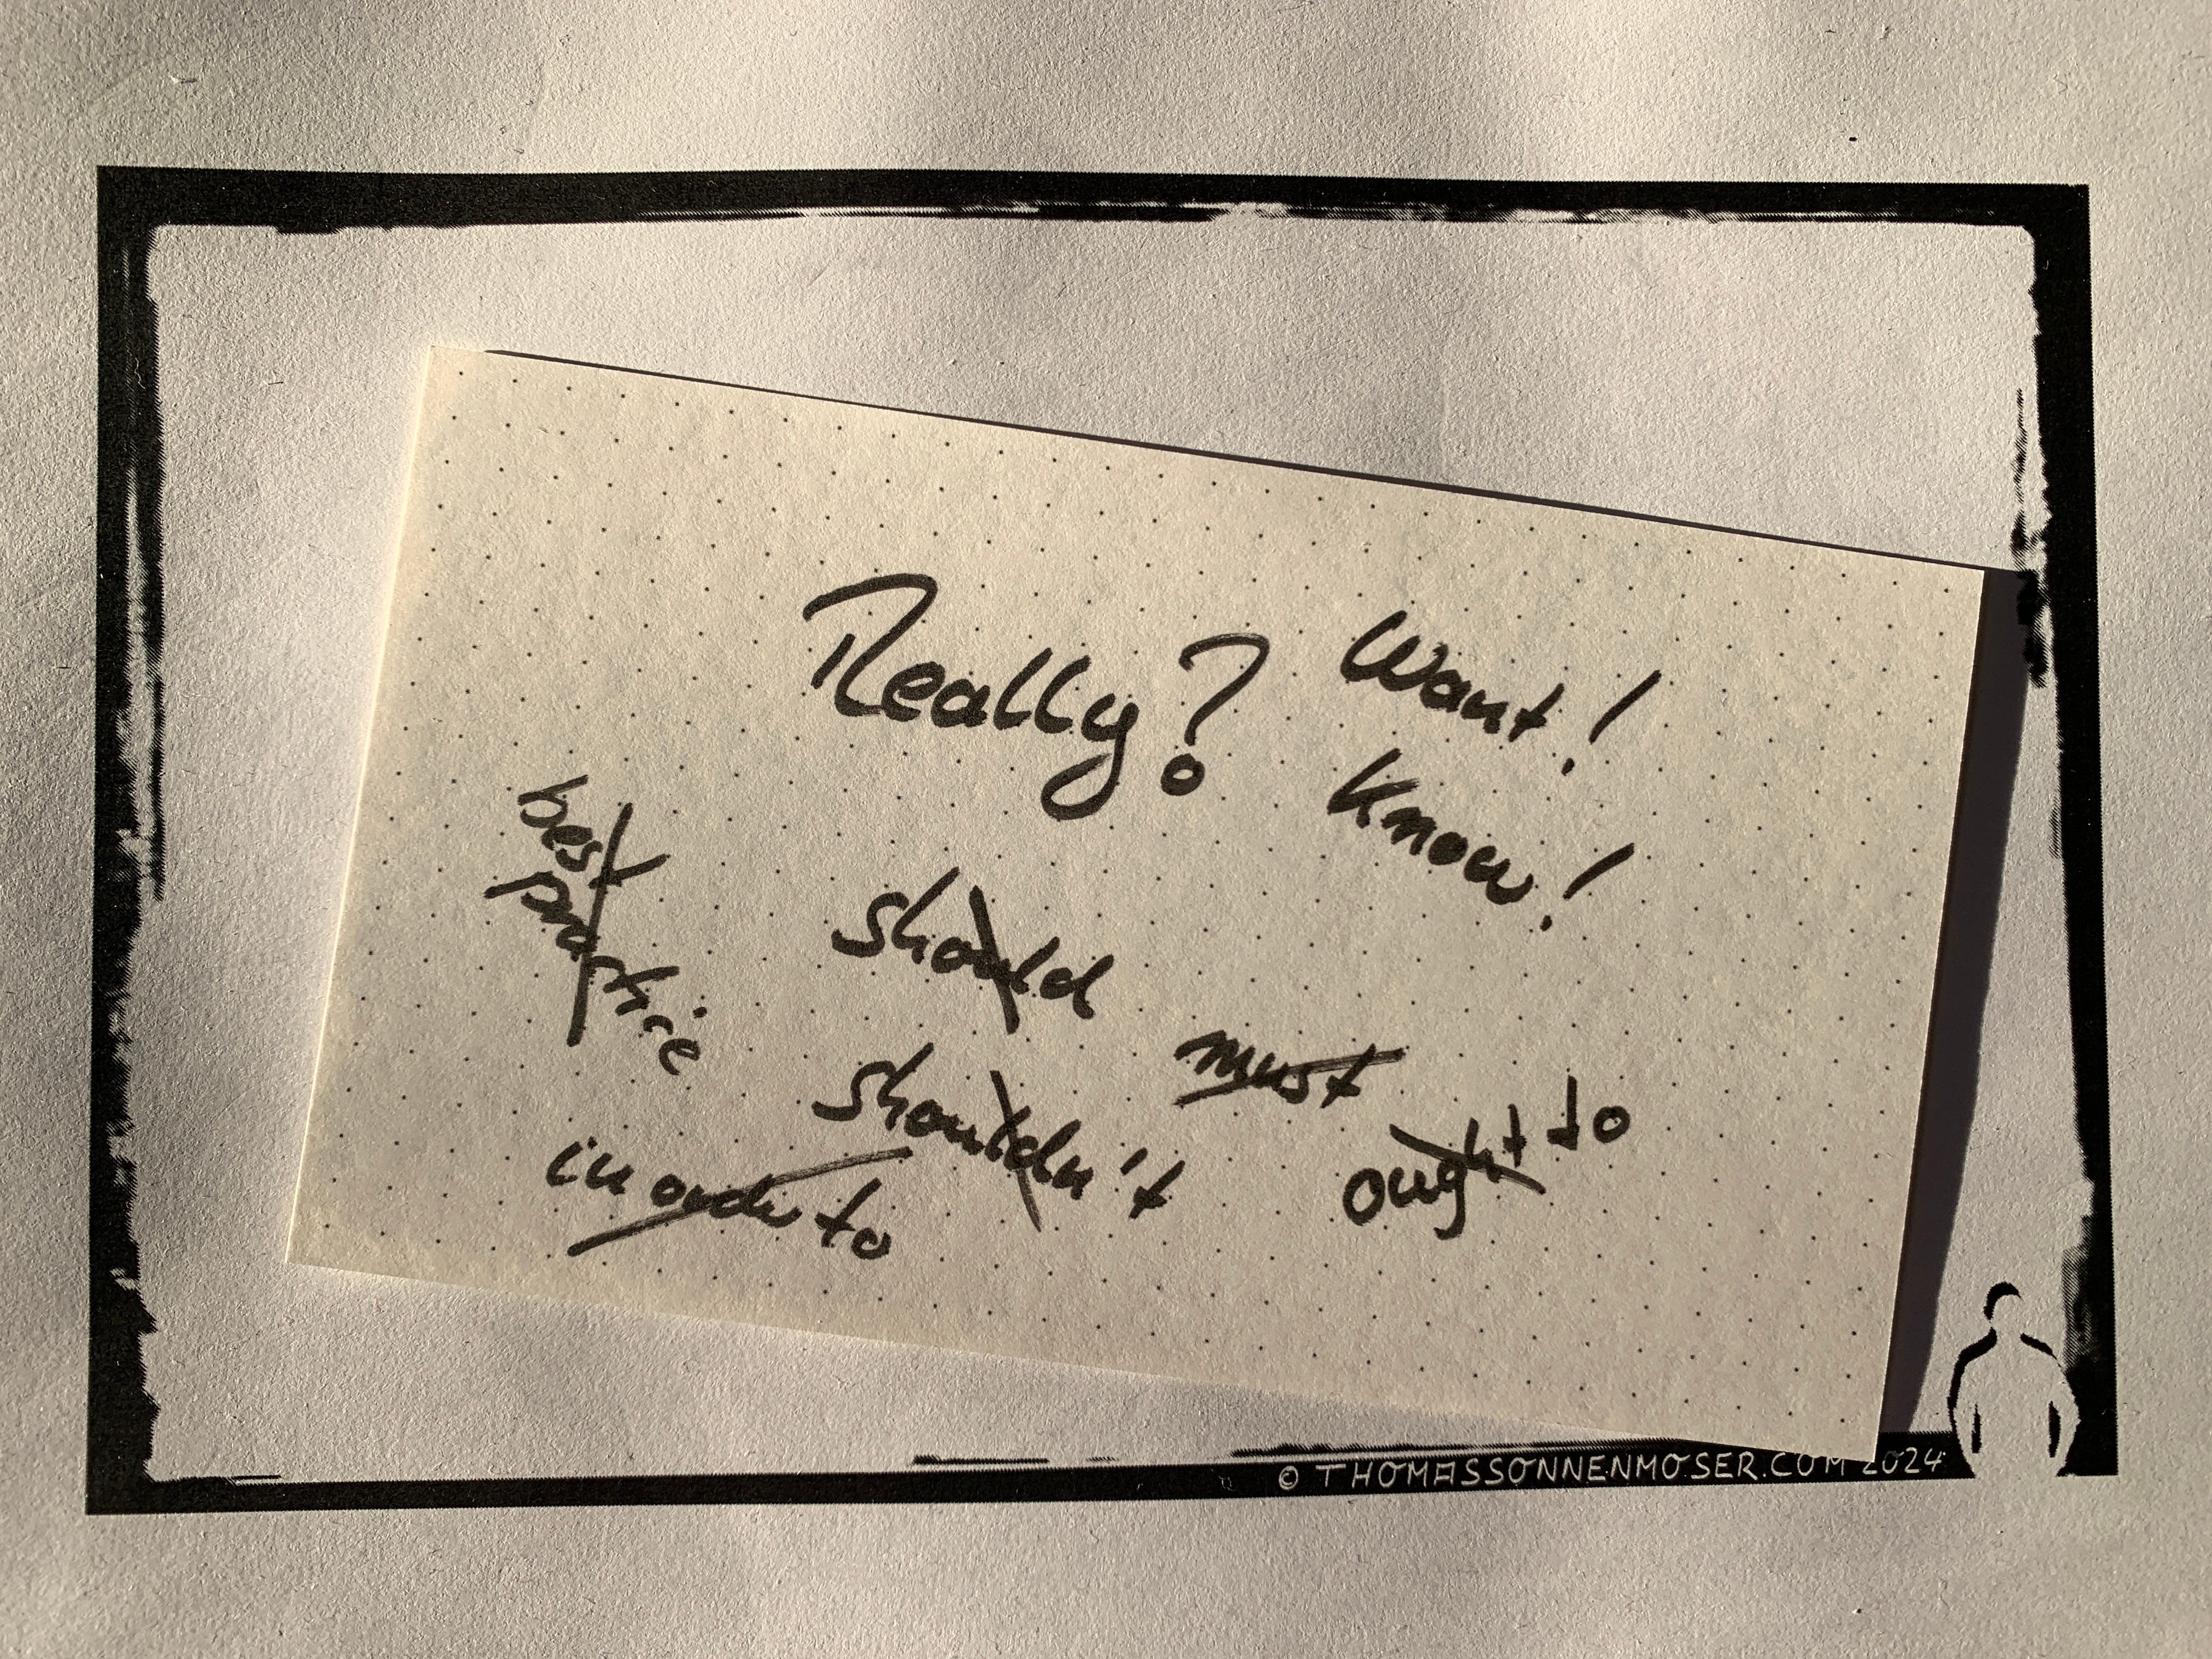 Really?
Want!
Know!
best
practie
should
shouldn't
must
ought to
in order to
© THOMASSONNENMOSER.COM 2024